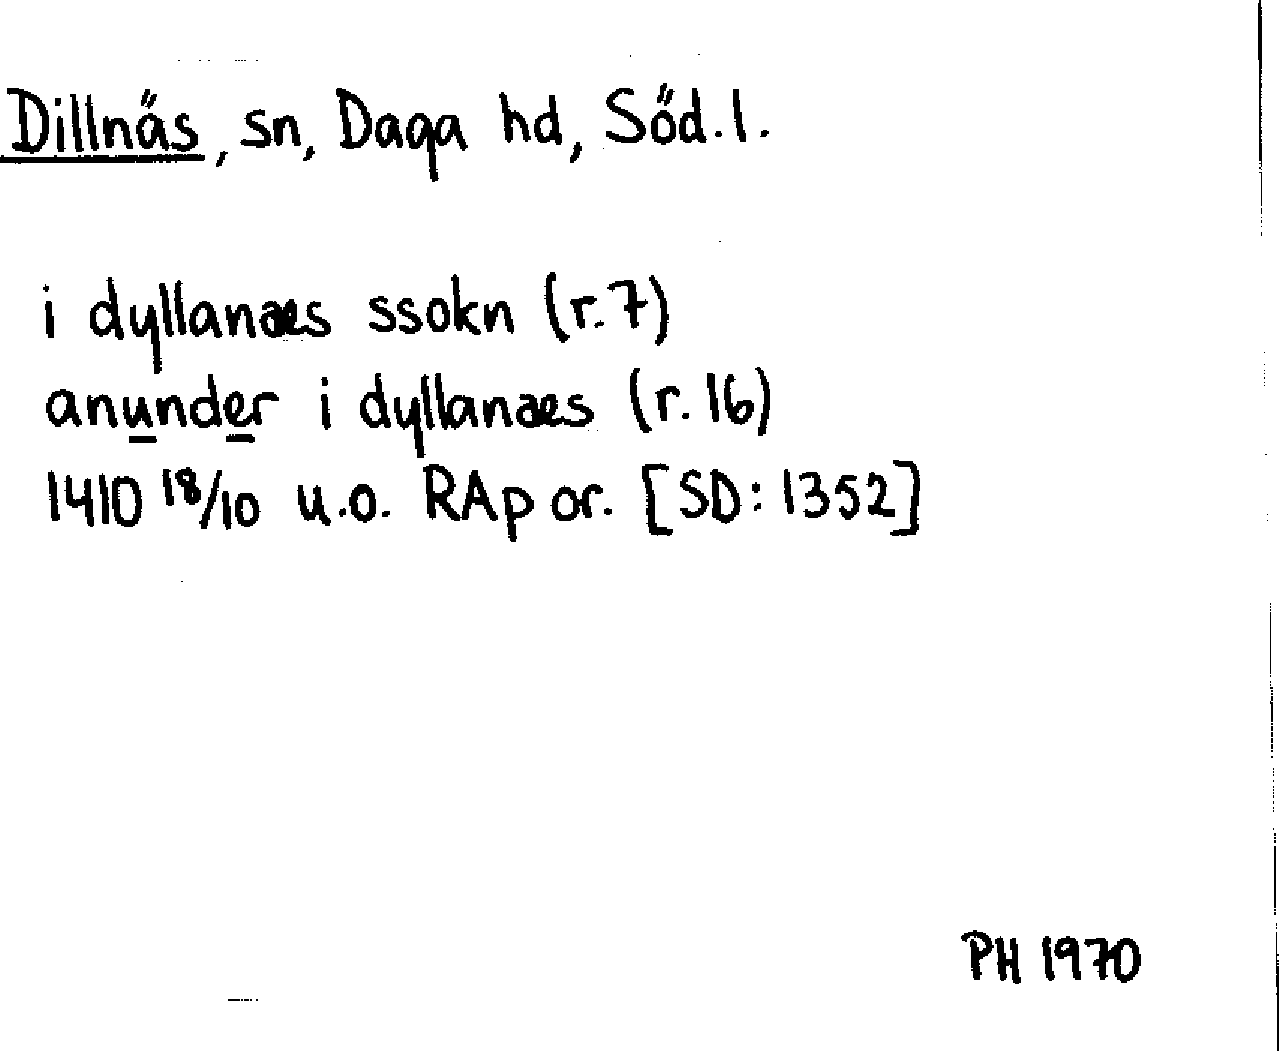 Dillnäs, sn, Daga hd, Söd.l.
i dyllanaes ssokn (r.7)
anunder i dyllanaes (r.16)
1410 18/10 u.o. RAp or. [SD: 1352]
PH 1970